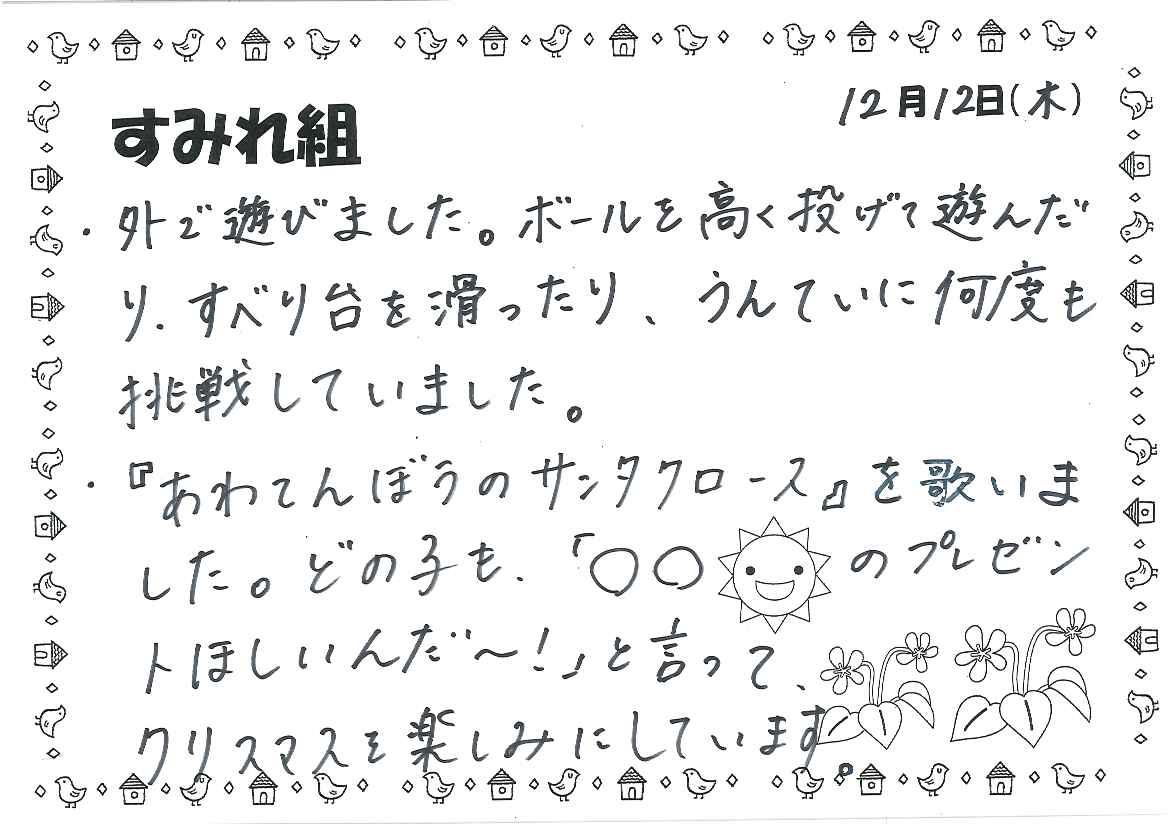 12月12日(木)
すみれ組
・外で遊びました。ボールを高く投げて遊んだ
り、すべり台を滑ったり、うんていに何度も
挑戦していました。
・『あわてんぼうのサンタクロース』を歌いま
した。どの子も、「〇〇のプレゼン
トほしいんだ〜!」と言って、
クリスマスを楽しみにしています。